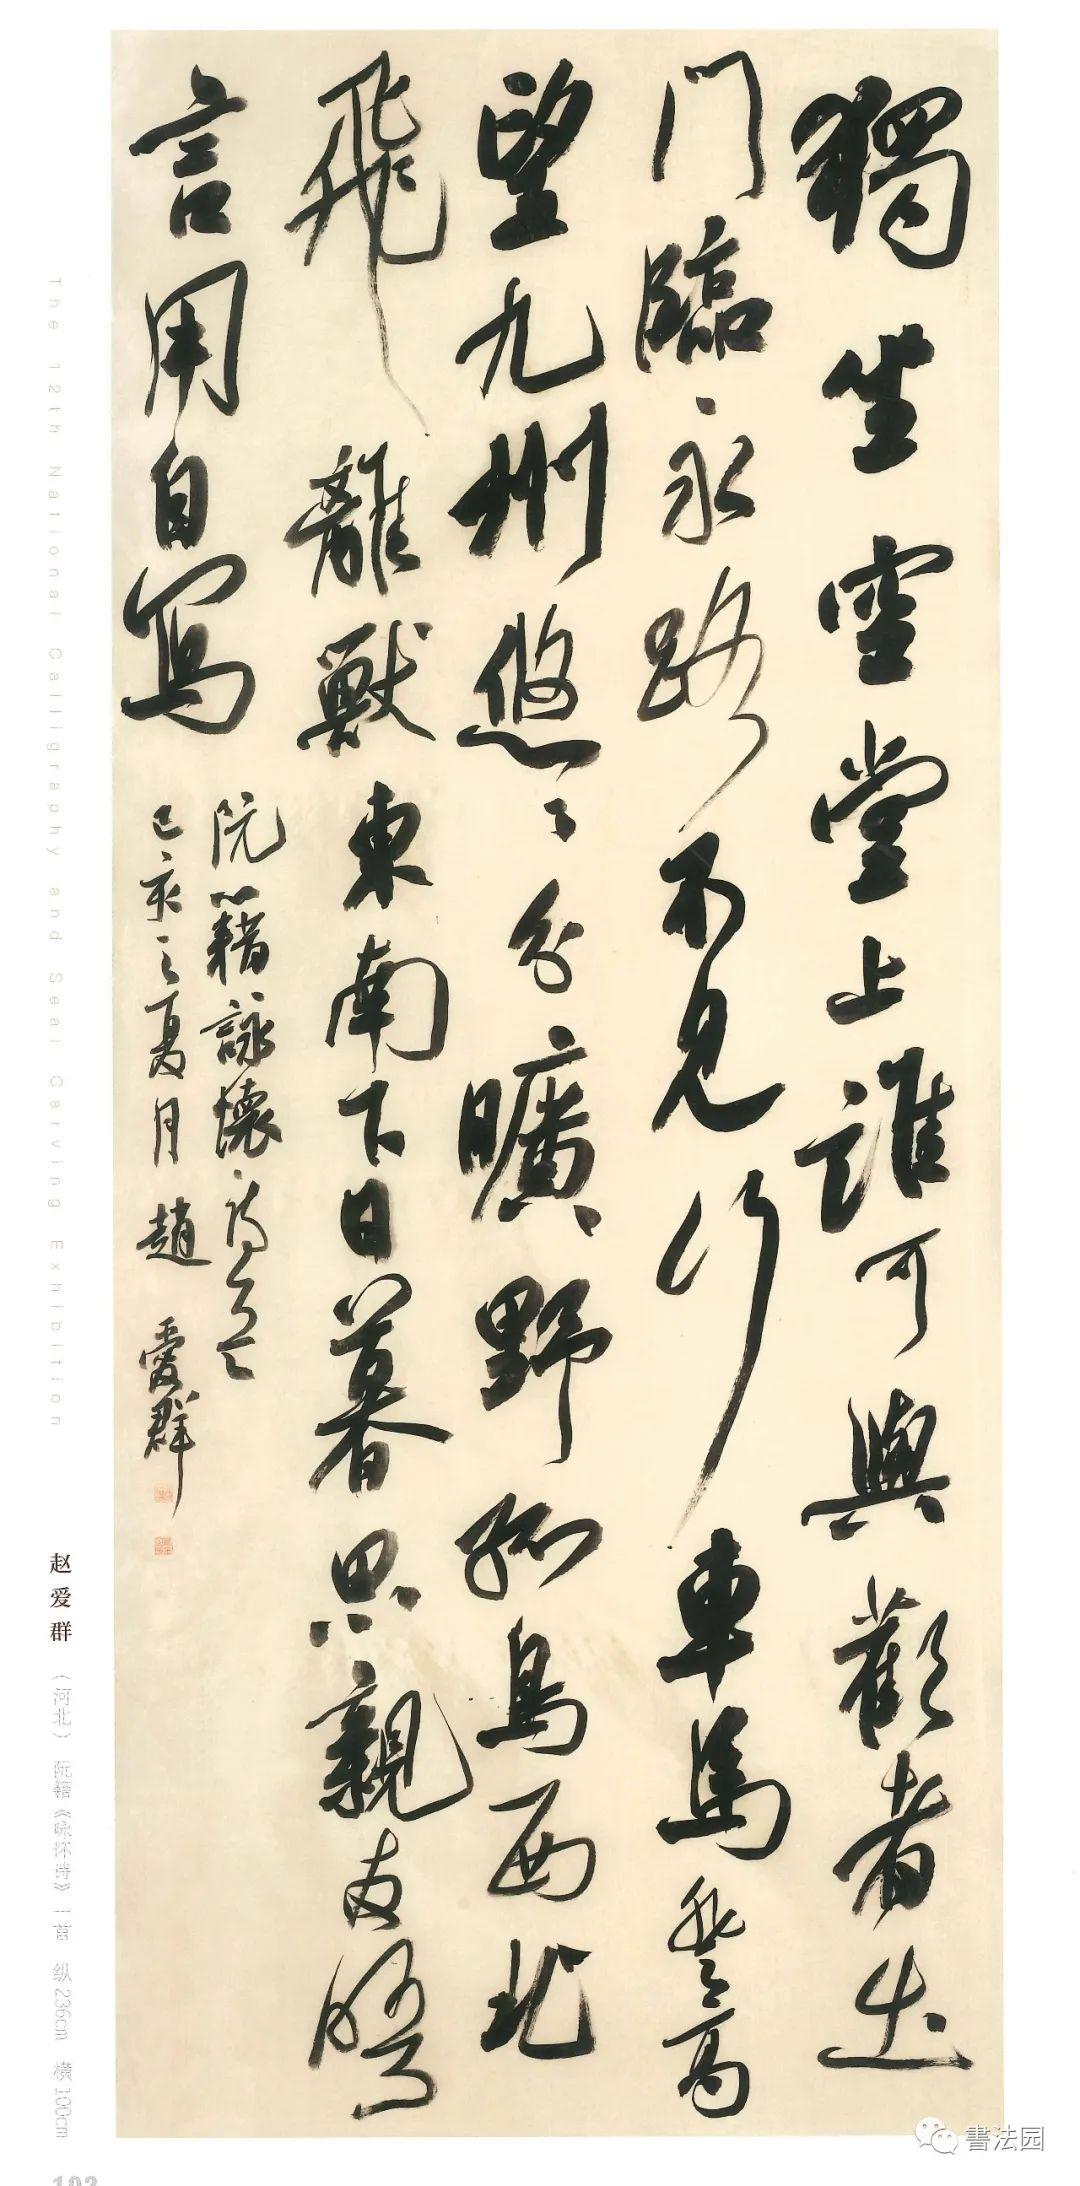 獨坐空堂上誰可與歡者出
門臨永路不見行車馬登高
望九州悠々分曠野孤鳥西北
飛離獸東南下日暮思親友晤
言用自寫
阮籍詠懷詩
己亥之夏月 趙愛群
The 12th National Calligraphy and Seal Carving Exhibition
赵爱群 （河北） 阮籍《咏怀诗》一首 纵236cm 横100cm
書法园